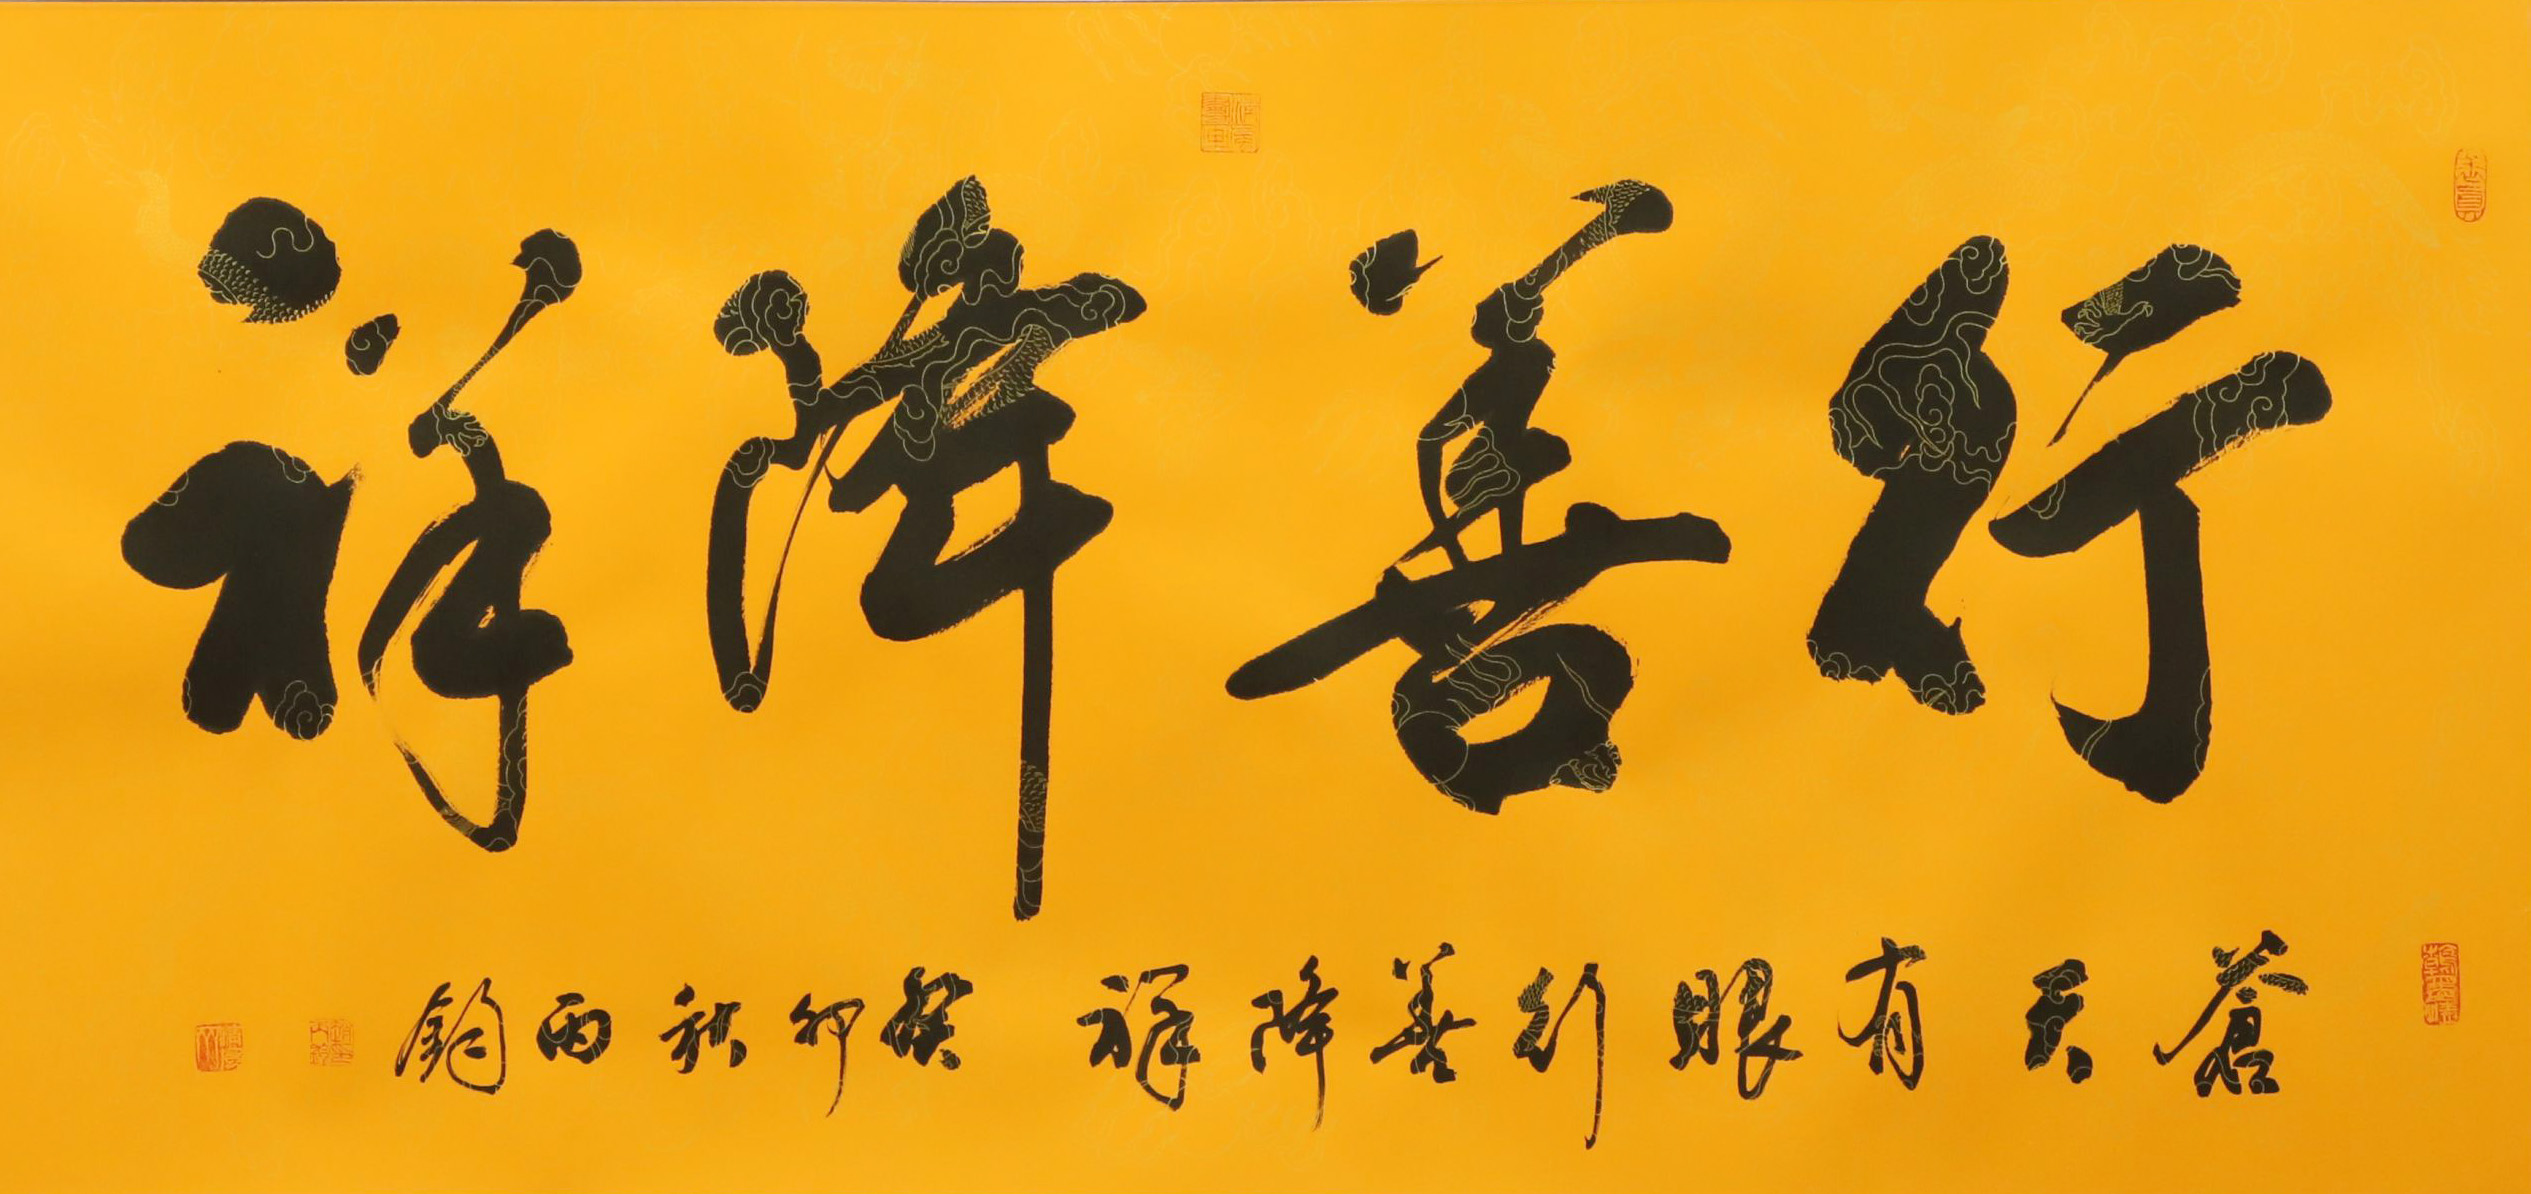 行善降祥
蒼天有眼行善降祥 癸卯秋丙鈞